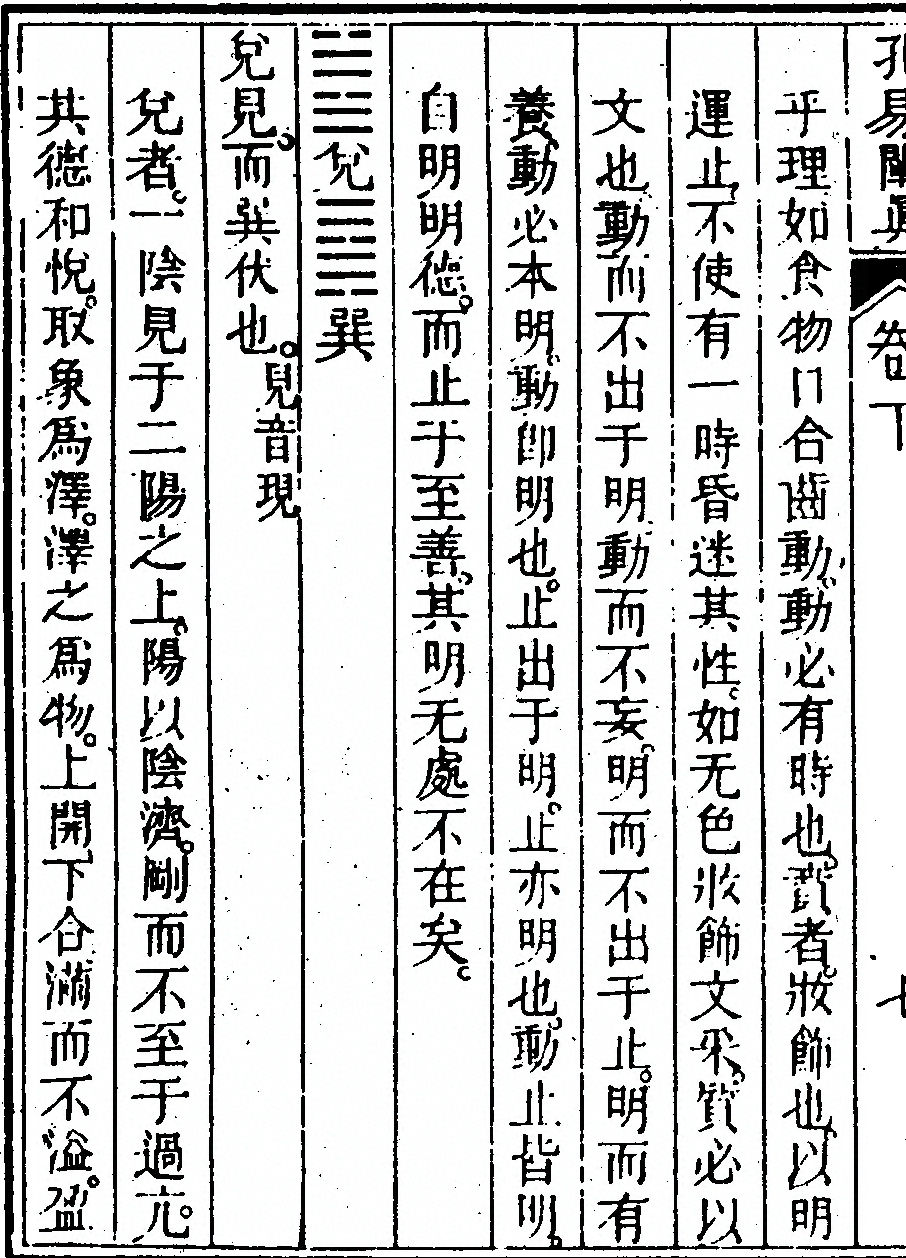 孔易闡眞 卷下 七
乎理如食物口合齒動動必有時也賁者妝飾也以明
運止不使有一時昏迷其性如无色妝飾文采賁必以
文也動而不出于明動而不妄明而不出于止明而有
養動必本明動卽明也止出于明止亦明也動止皆明
自明明德而止于至善其明无處不在矣
䷹兌䷸巽
兌見而巽伏也 見音現
兌者一陰見于二陽之上陽以陰濟剛而不至于過亢
其德和悅取象爲澤澤之爲物上開下合滿而不溢盈